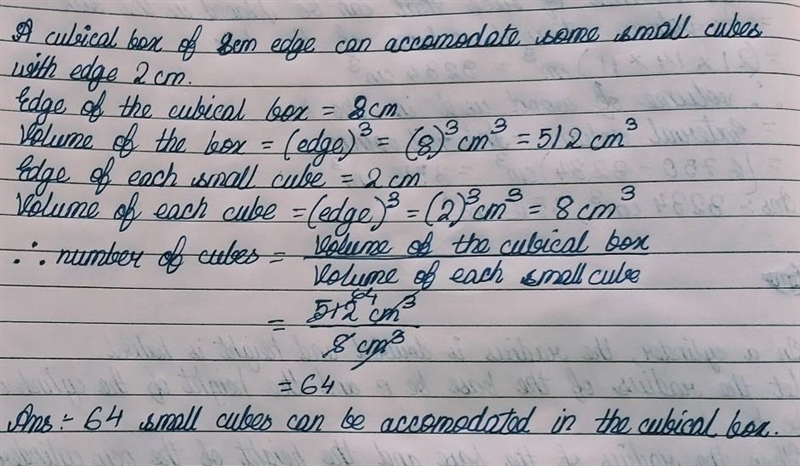 A cubical box of 8cm edge can accomodate some small cubes
with edge 2 cm.
Edge of the cubical box = 8cm
Volume of the box = (edge)³ = (8)³ cm³ = 512 cm³
Edge of each small cube = 2 cm
Volume of each cube = (edge)³ = (2)³ cm³ = 8 cm³
∴ number of cubes = Volume of the cubical box
Volume of each small cube
64
= 512 cm³
8 cm³
= 64
Ans :- 64 small cubes can be accomodated in the cubical box.